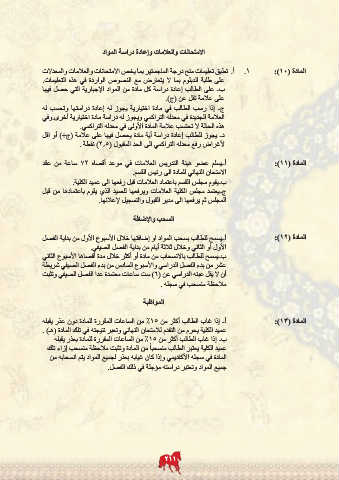 الامتحانات والعلامات وإعادة دراسة المواد
المادة (١٠): ١. أ. تطبق تعليمات منح درجة الماجستير بما يخص الامتحانات والعلامات والمعدلات
على طلبة الدبلوم بما لا يتعارض مع النصوص الواردة في هذه التعليمات.
ب. على الطالب إعادة دراسة كل مادة من المواد الإجبارية التي حصل فيها
على علامة تقل عن (ج).
ج. إذا رسب الطالب في مادة اختيارية يجوز له إعادة دراستها وتحسب له
العلامة الجديدة في معدله التراكمي ويجوز له دراسة مادة اختيارية أخرى، وفي
هذه الحالة لا تحتسب علامة المادة الأولى في معدله التراكمي.
د. يجوز للطالب إعادة دراسة أية مادة يحصل فيها على علامة (ج+) أو أقل
لأغراض رفع معدله التراكمي الى الحد المقبول (٢,٥) نقطة.
المادة (١١): أ. يسلم عضو هيئة التدريس العلامات في موعد أقصاه ٧٢ ساعة من عقد
الامتحان النهائي للمادة الى رئيس القسم.
ب. يقوم مجلس القسم باعتماد العلامات قبل رفعها الى عميد الكلية.
ج. يعتمد مجلس الكلية العلامات ويرفعها للعميد الذي يقوم باعتمادها من قبل
المجلس ثم يرفعها الى مدير القبول والتسجيل لإعلانها.
السحب والإضافة
المادة (١٢): أ. يسمح للطالب بسحب المواد او إضافتها خلال الأسبوع الأول من بداية الفصل
الأول أو الثاني وخلال ثلاثة أيام من بداية الفصل الصيفي.
ب. يسمح للطالب بالانسحاب من مادة أو أكثر خلال مدة أقصاها الأسبوع الثاني
عشر من بدء الفصل الدراسي والأسبوع السادس من بدء الفصل الصيفي شريطة
أن لا يقل عبئه الدراسي عن (٦) ست ساعات معتمدة عدا الفصل الصيفي وتثبت
ملاحظة منسحب في سجله.
المواظبة
المادة (١٣): أ. إذا غاب الطالب أكثر من ١٥٪ من الساعات المقررة للمادة دون عذر يقبله
عميد الكلية يحرم من التقدم للامتحان النهائي وتعتبر نتيجته في تلك المادة (هـ).
ب. إذا غاب الطالب أكثر من ١٥٪ من الساعات المقررة للمادة بعذر يقبله
عميد الكلية يعتبر الطالب منسحباً من المادة وتثبت ملاحظة منسحب إزاء تلك
المادة في سجله الأكاديمي وإذا كان غيابه بعذر لجميع المواد يتم انسحابه من
جميع المواد وتعتبر دراسته مؤجلة في ذلك الفصل.
٢١١